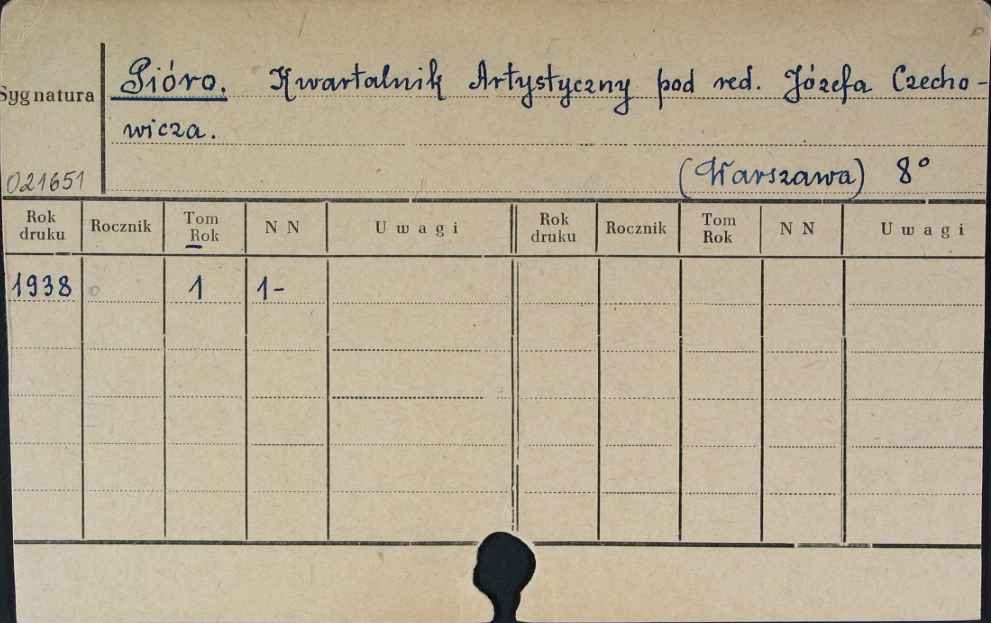 Pióro. Kwartalnik Artystyczny pod red. Józefa Czecho-
Sygnatura
wicza.
021651
(Warszawa) 8°
Rok druku Rocznik Tom Rok N N Uwagi Rok druku Rocznik Tom Rok N N Uwagi
1938 1 1-